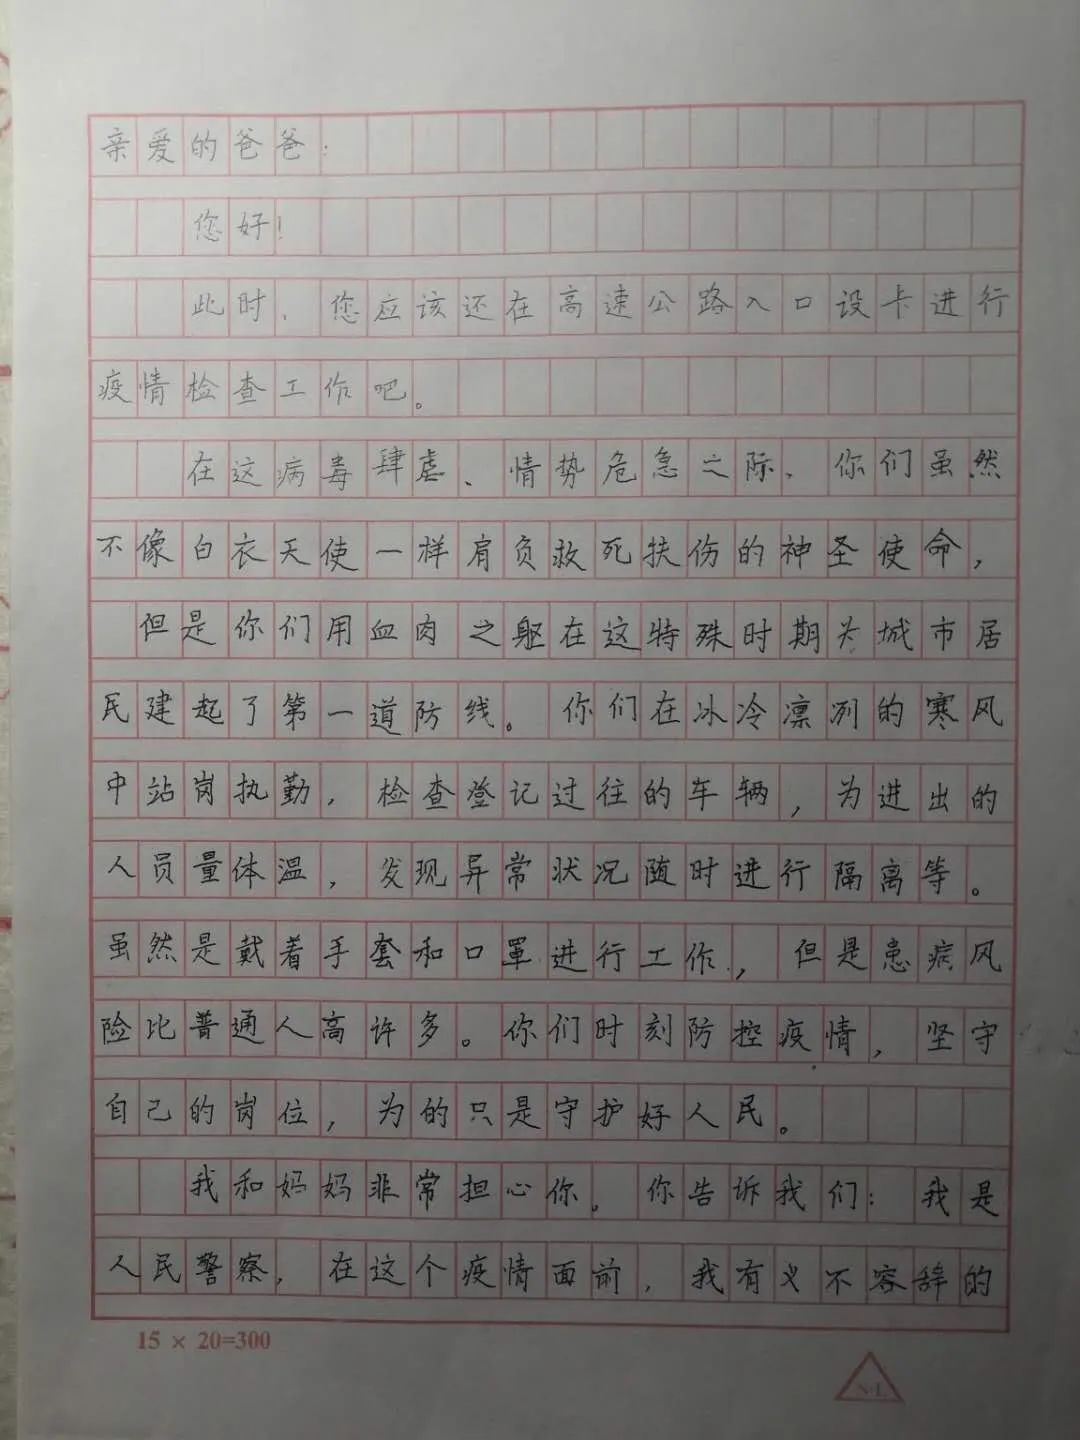 亲爱的爸爸:
您好!
此时、您应该还在高速公路入口设卡进行
疫情检查工作吧。
在这病毒肆虐、情势危急之际、你们虽然
不像白衣天使一样肩负救死扶伤的神圣使命,
但是你们用血肉之躯在这特殊时期为城市居
民建起了第一道防线。你们在冰冷凛冽的寒风
中站岗执勤,检查登记过往的车辆,为进出的
人员量体温,发现异常状况随时进行隔离等。
虽然是戴着手套和口罩进行工作,但是患病风
险比普通人高许多。你们时刻防控疫情,坚守
自己的岗位,为的只是守护好人民。
我和妈妈非常担心你。你告诉我们:我是
人民警察,在这个疫情面前,我有义不容辞的
15 × 20=300
N·L